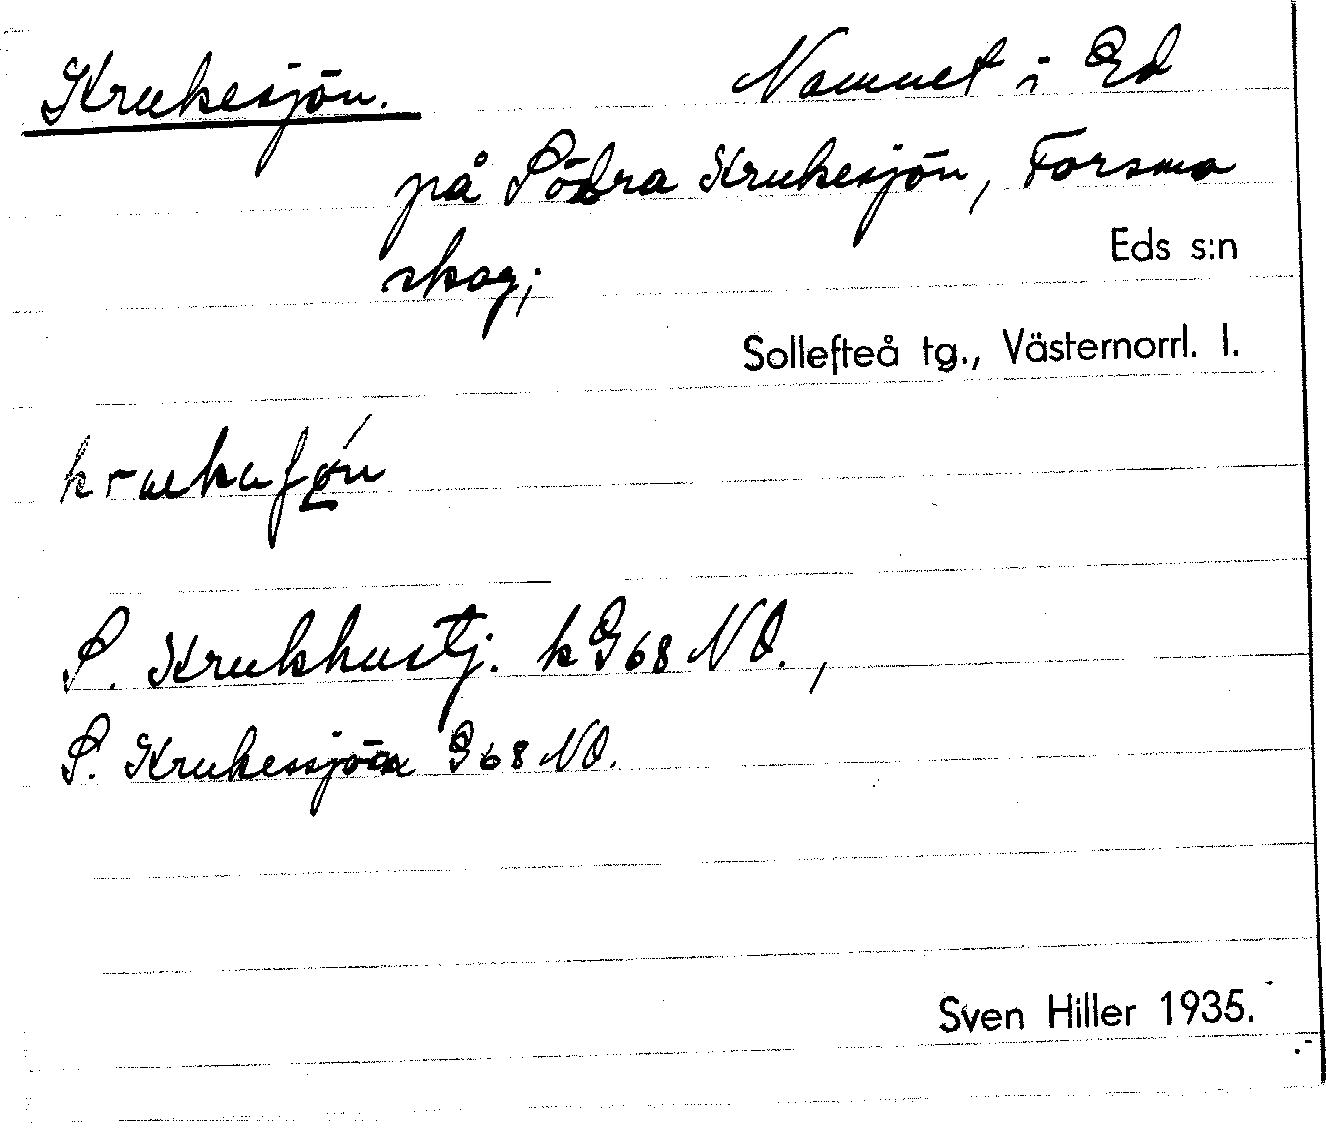 Krukesjön. Namnet i Ed
på Södra Krukesjön, Forsmo
skog;
Eds s:n
Sollefteå tg., Västernorrl. l.
S. Krukhustj. k G68 NO.,
S. Krukessjöen G68 NO.
Sven Hiller 1935.